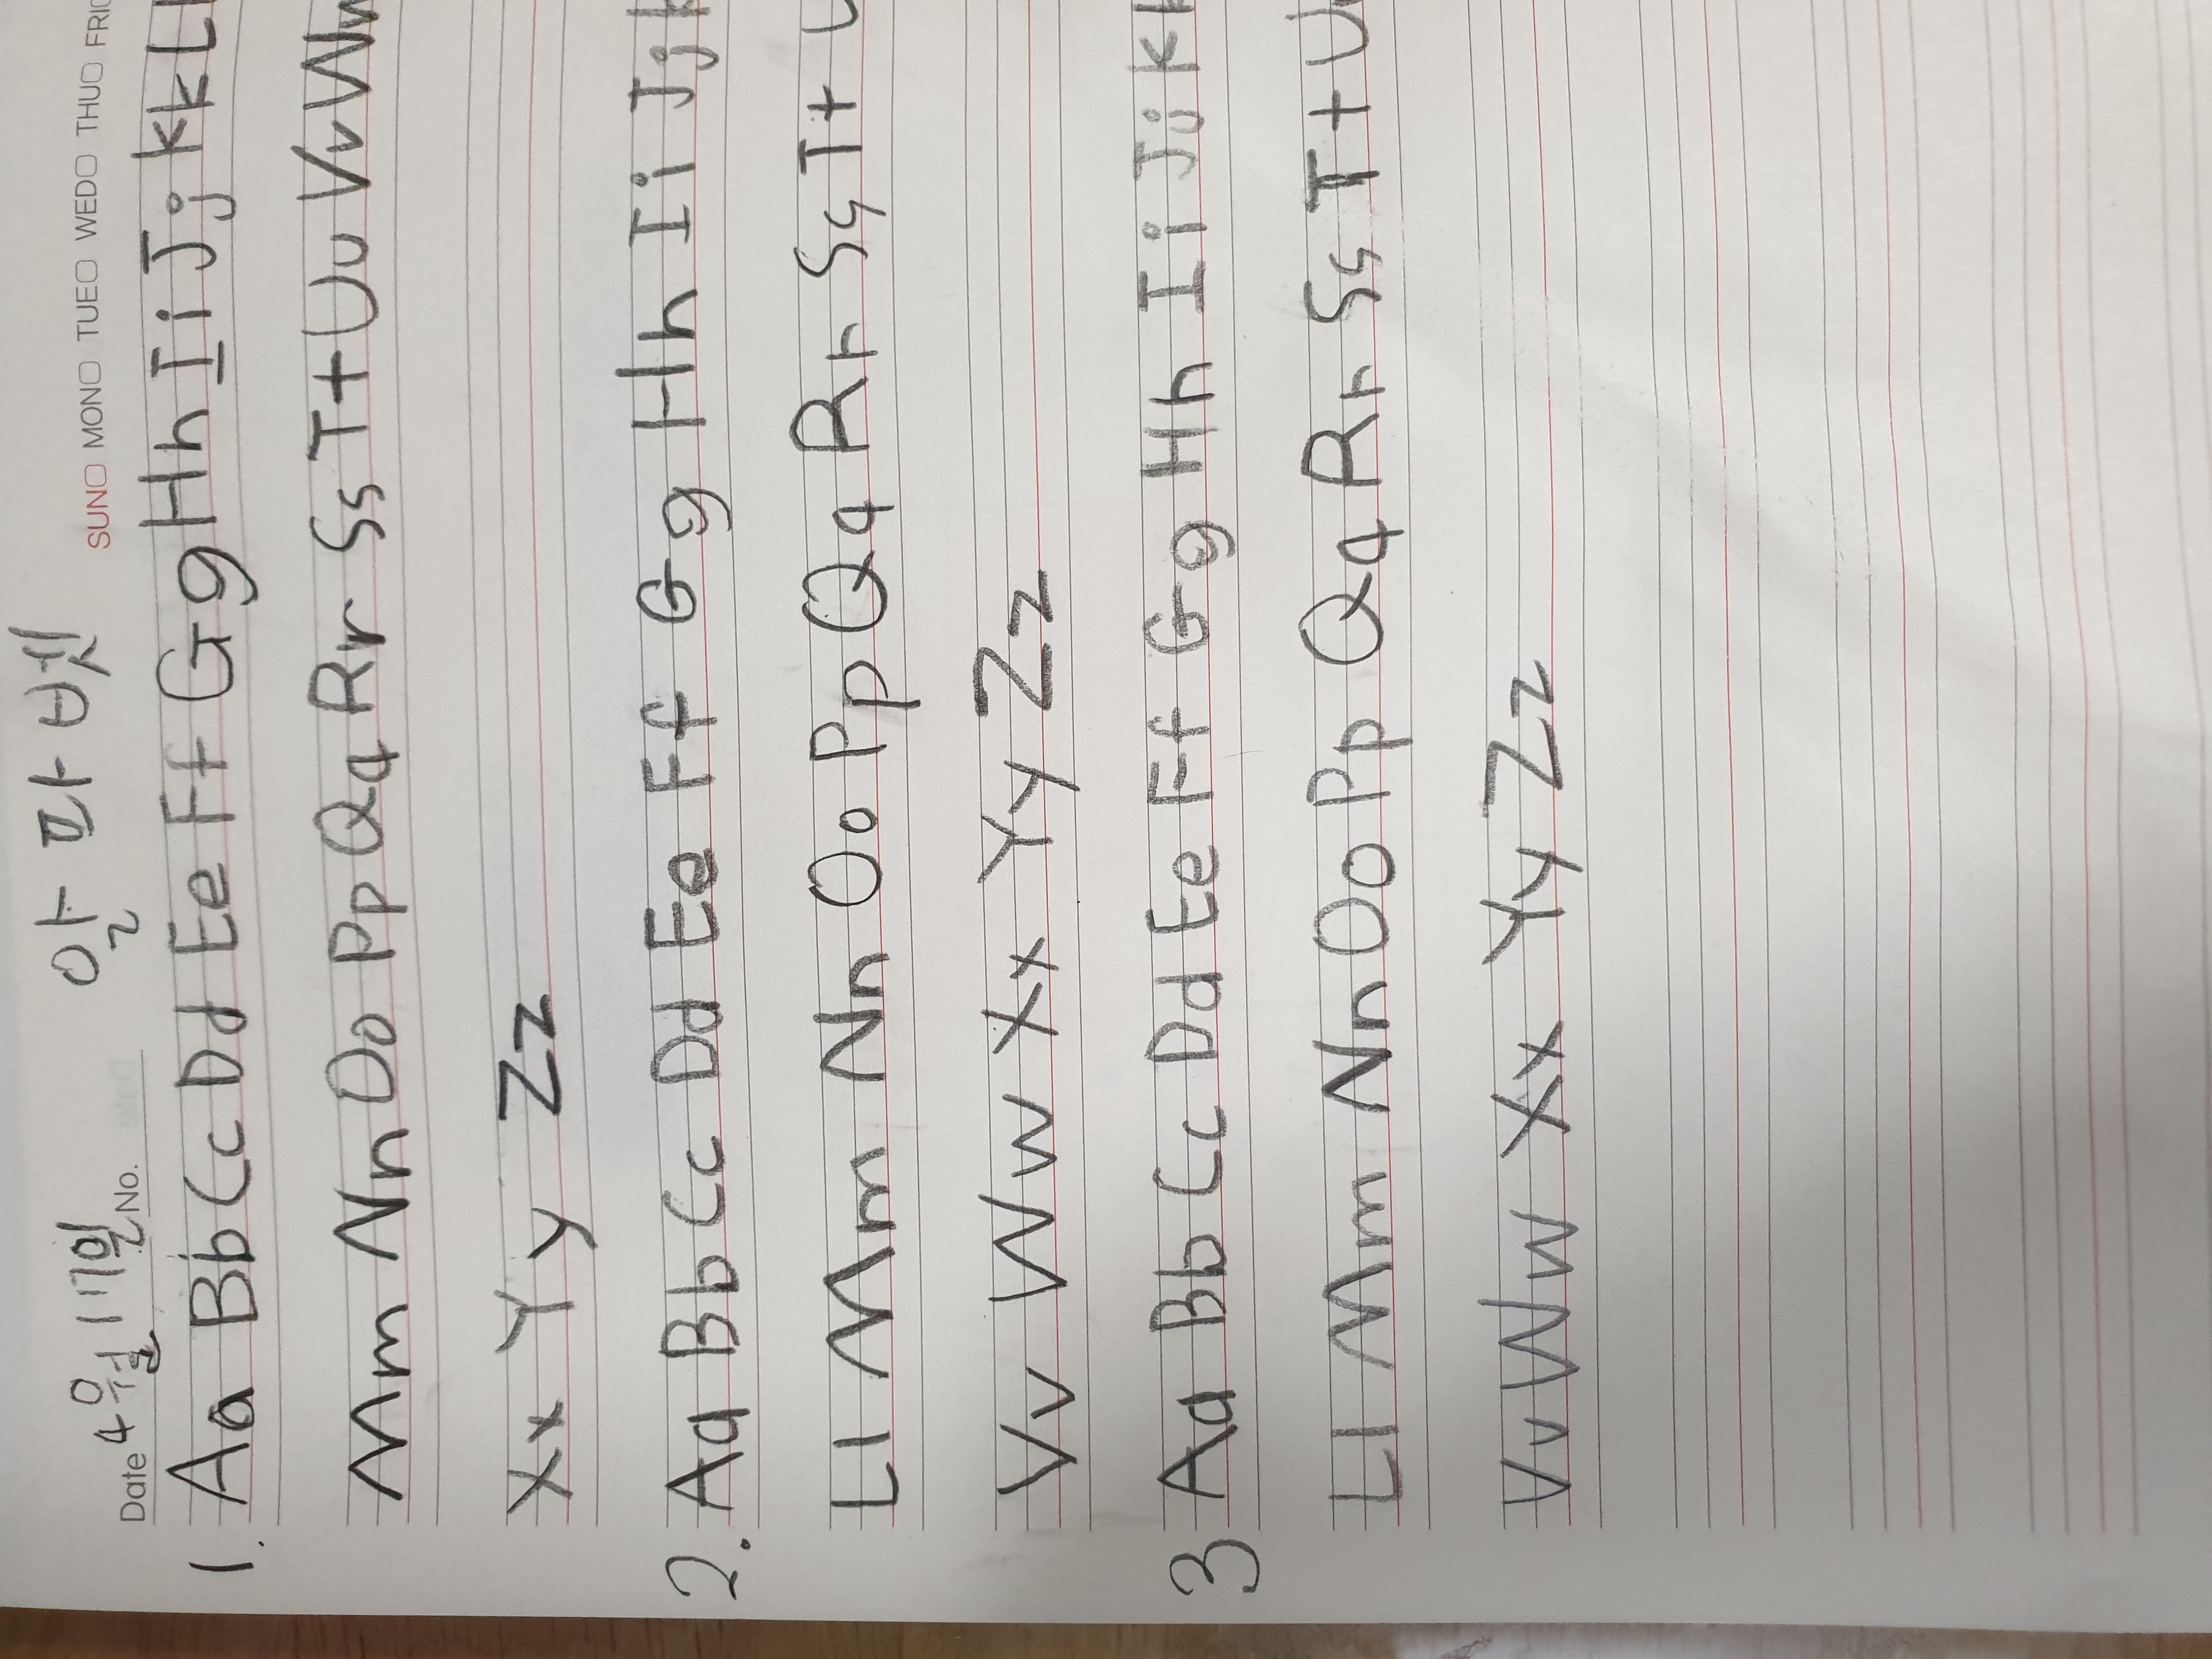 알파벳
SUN MON TUE WED THU FRI
Date 4월 17일 No.
1. Aa Bb Cc Dd Ee Ff Gg Hh Ii Jj Kk Ll
Mm Nn Oo Pp Qq Rr Ss Tt Uu Vv Ww
Xx Yy Zz
2. Aa Bb Cc Dd Ee Ff Gg Hh Ii Jj k
Ll Mm Nn Oo Pp Qq Rr Ss Tt U
Vv Ww Xx Yy Zz
3 Aa Bb Cc Dd Ee Ff Gg Hh Ii Jj K
Ll Mm Nn Oo Pp Qq Rr Ss Tt U
Vv Ww Xx Yy Zz